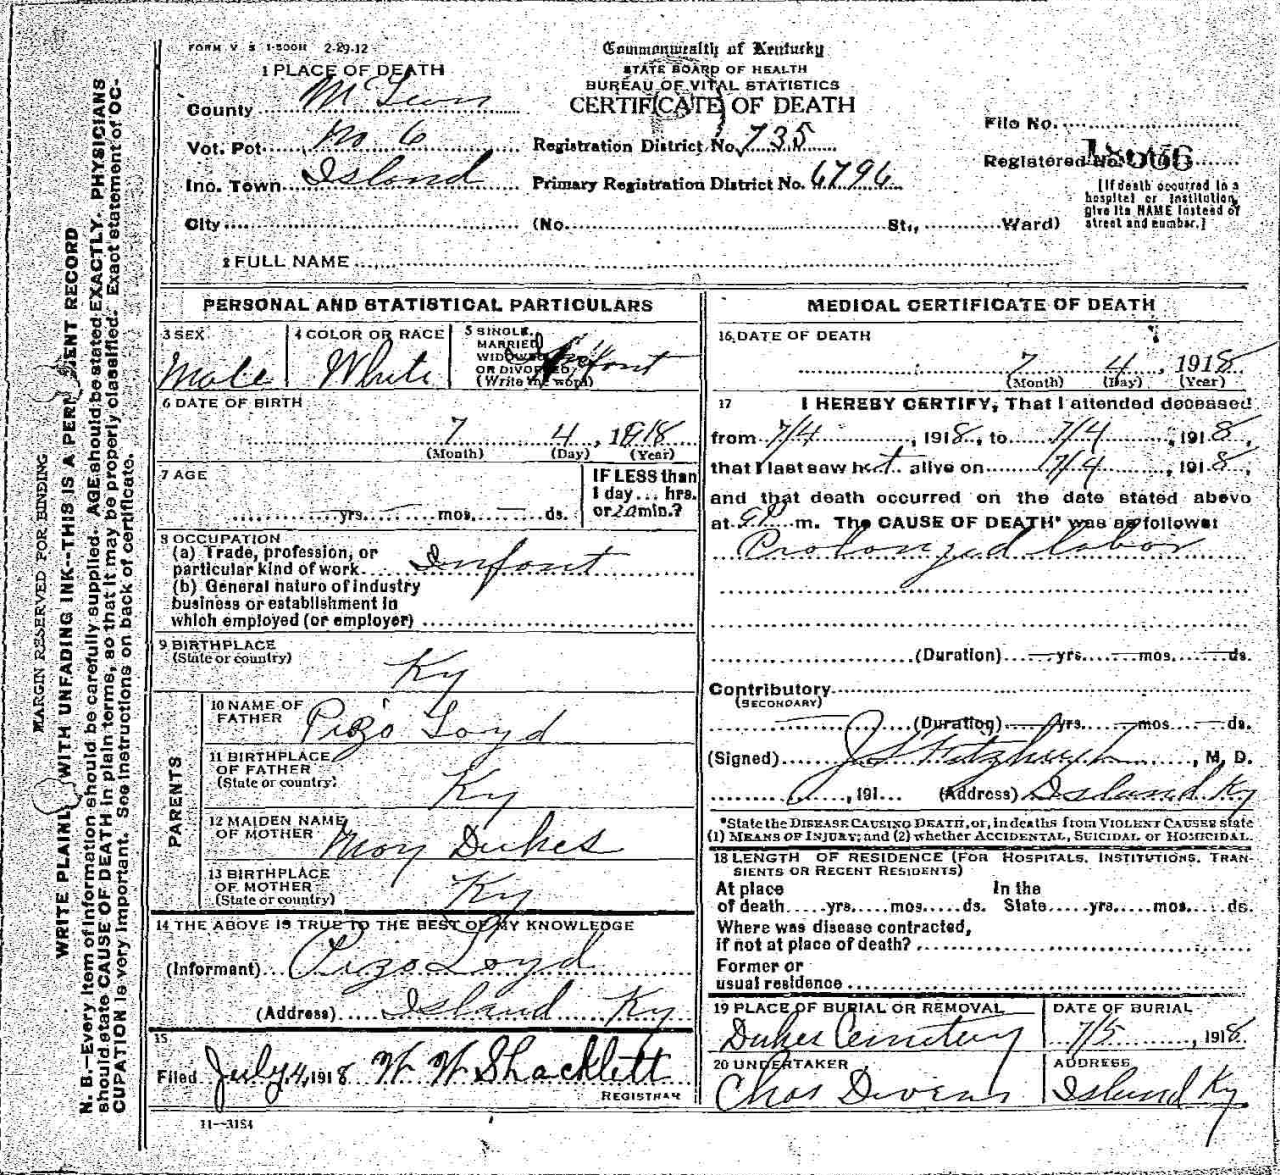 FORM V S 1-500M 2-29-12
Commonwealth of Kentucky
STATE BOARD OF HEALTH
BUREAU OF VITAL STATISTICS
CERTIFICATE OF DEATH
1 PLACE OF DEATH
County McLean
Vot. Pct. No 6
Inc. Town Island
City
Registration District No. 735
Primary Registration District No. 6796
(No. St., Ward)
File No.
Registered No.
[If death occurred in a
hospital or institution,
give its NAME instead of
street and number.]
2 FULL NAME
MARGIN RESERVED FOR BINDING
WRITE PLAINLY WITH UNFADING INK--THIS IS A PERMANENT RECORD
N. B.--Every item of information should be carefully supplied. AGE should be stated EXACTLY. PHYSICIANS
should state CAUSE OF DEATH in plain terms, so that it may be properly classified. Exact statement of OC-
CUPATION is very important. See instructions on back of certificate.
PERSONAL AND STATISTICAL PARTICULARS
3 SEX
Male
4 COLOR OR RACE
White
5 SINGLE,
MARRIED,
WIDOWED
OR DIVORCED,
(Write the word)
Infant
6 DATE OF BIRTH
7 4, 1918
(Month) (Day) (Year)
7 AGE
yrs. mos. ds.
IF LESS than
1 day... hrs.
or 20 min.?
8 OCCUPATION
(a) Trade, profession, or
particular kind of work Infant
(b) General nature of industry
business or establishment in
which employed (or employer)
9 BIRTHPLACE
(State or country)
Ky
PARENTS
10 NAME OF
FATHER
Pizo Loyd
11 BIRTHPLACE
OF FATHER
(State or country)
Ky
12 MAIDEN NAME
OF MOTHER
May Dukes
13 BIRTHPLACE
OF MOTHER
(State or country)
Ky
14 THE ABOVE IS TRUE TO THE BEST OF MY KNOWLEDGE
(Informant) Pizo Loyd
(Address) Island Ky
15
Filed July, 4, 1918 W W Shacklett
REGISTRAR
11--3184
MEDICAL CERTIFICATE OF DEATH
16 DATE OF DEATH
7 4, 1918
(Month) (Day) (Year)
17 I HEREBY CERTIFY, That I attended deceased
from 7/4, 1918, to 7/4, 1918,
that I last saw h alive on 7/4, 1918,
and that death occurred on the date stated above
at m. The CAUSE OF DEATH* was as follows:
Prolonged labor
(Duration) yrs. mos. ds.
Contributory
(SECONDARY)
(Duration) yrs. mos. ds.
(Signed) Fitzhugh, M. D.
, 191 (Address) Island Ky
*State the DISEASE CAUSING DEATH, or, in deaths from VIOLENT CAUSES state
(1) MEANS OF INJURY; and (2) whether ACCIDENTAL, SUICIDAL or HOMICIDAL.
18 LENGTH OF RESIDENCE (FOR HOSPITALS, INSTITUTIONS, TRAN-
SIENTS OR RECENT RESIDENTS)
At place In the
of death yrs. mos. ds. State yrs. mos. ds.
Where was disease contracted,
if not at place of death?
Former or
usual residence
19 PLACE OF BURIAL OR REMOVAL
Dukes Cemetery
DATE OF BURIAL
7/5, 1918
20 UNDERTAKER
Chas
ADDRESS
Island Ky